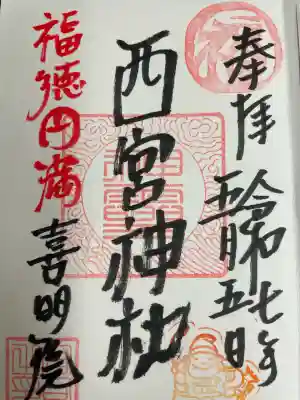 奉拝
令和七年
五月五日
西宮神社
福徳円満
喜明
福